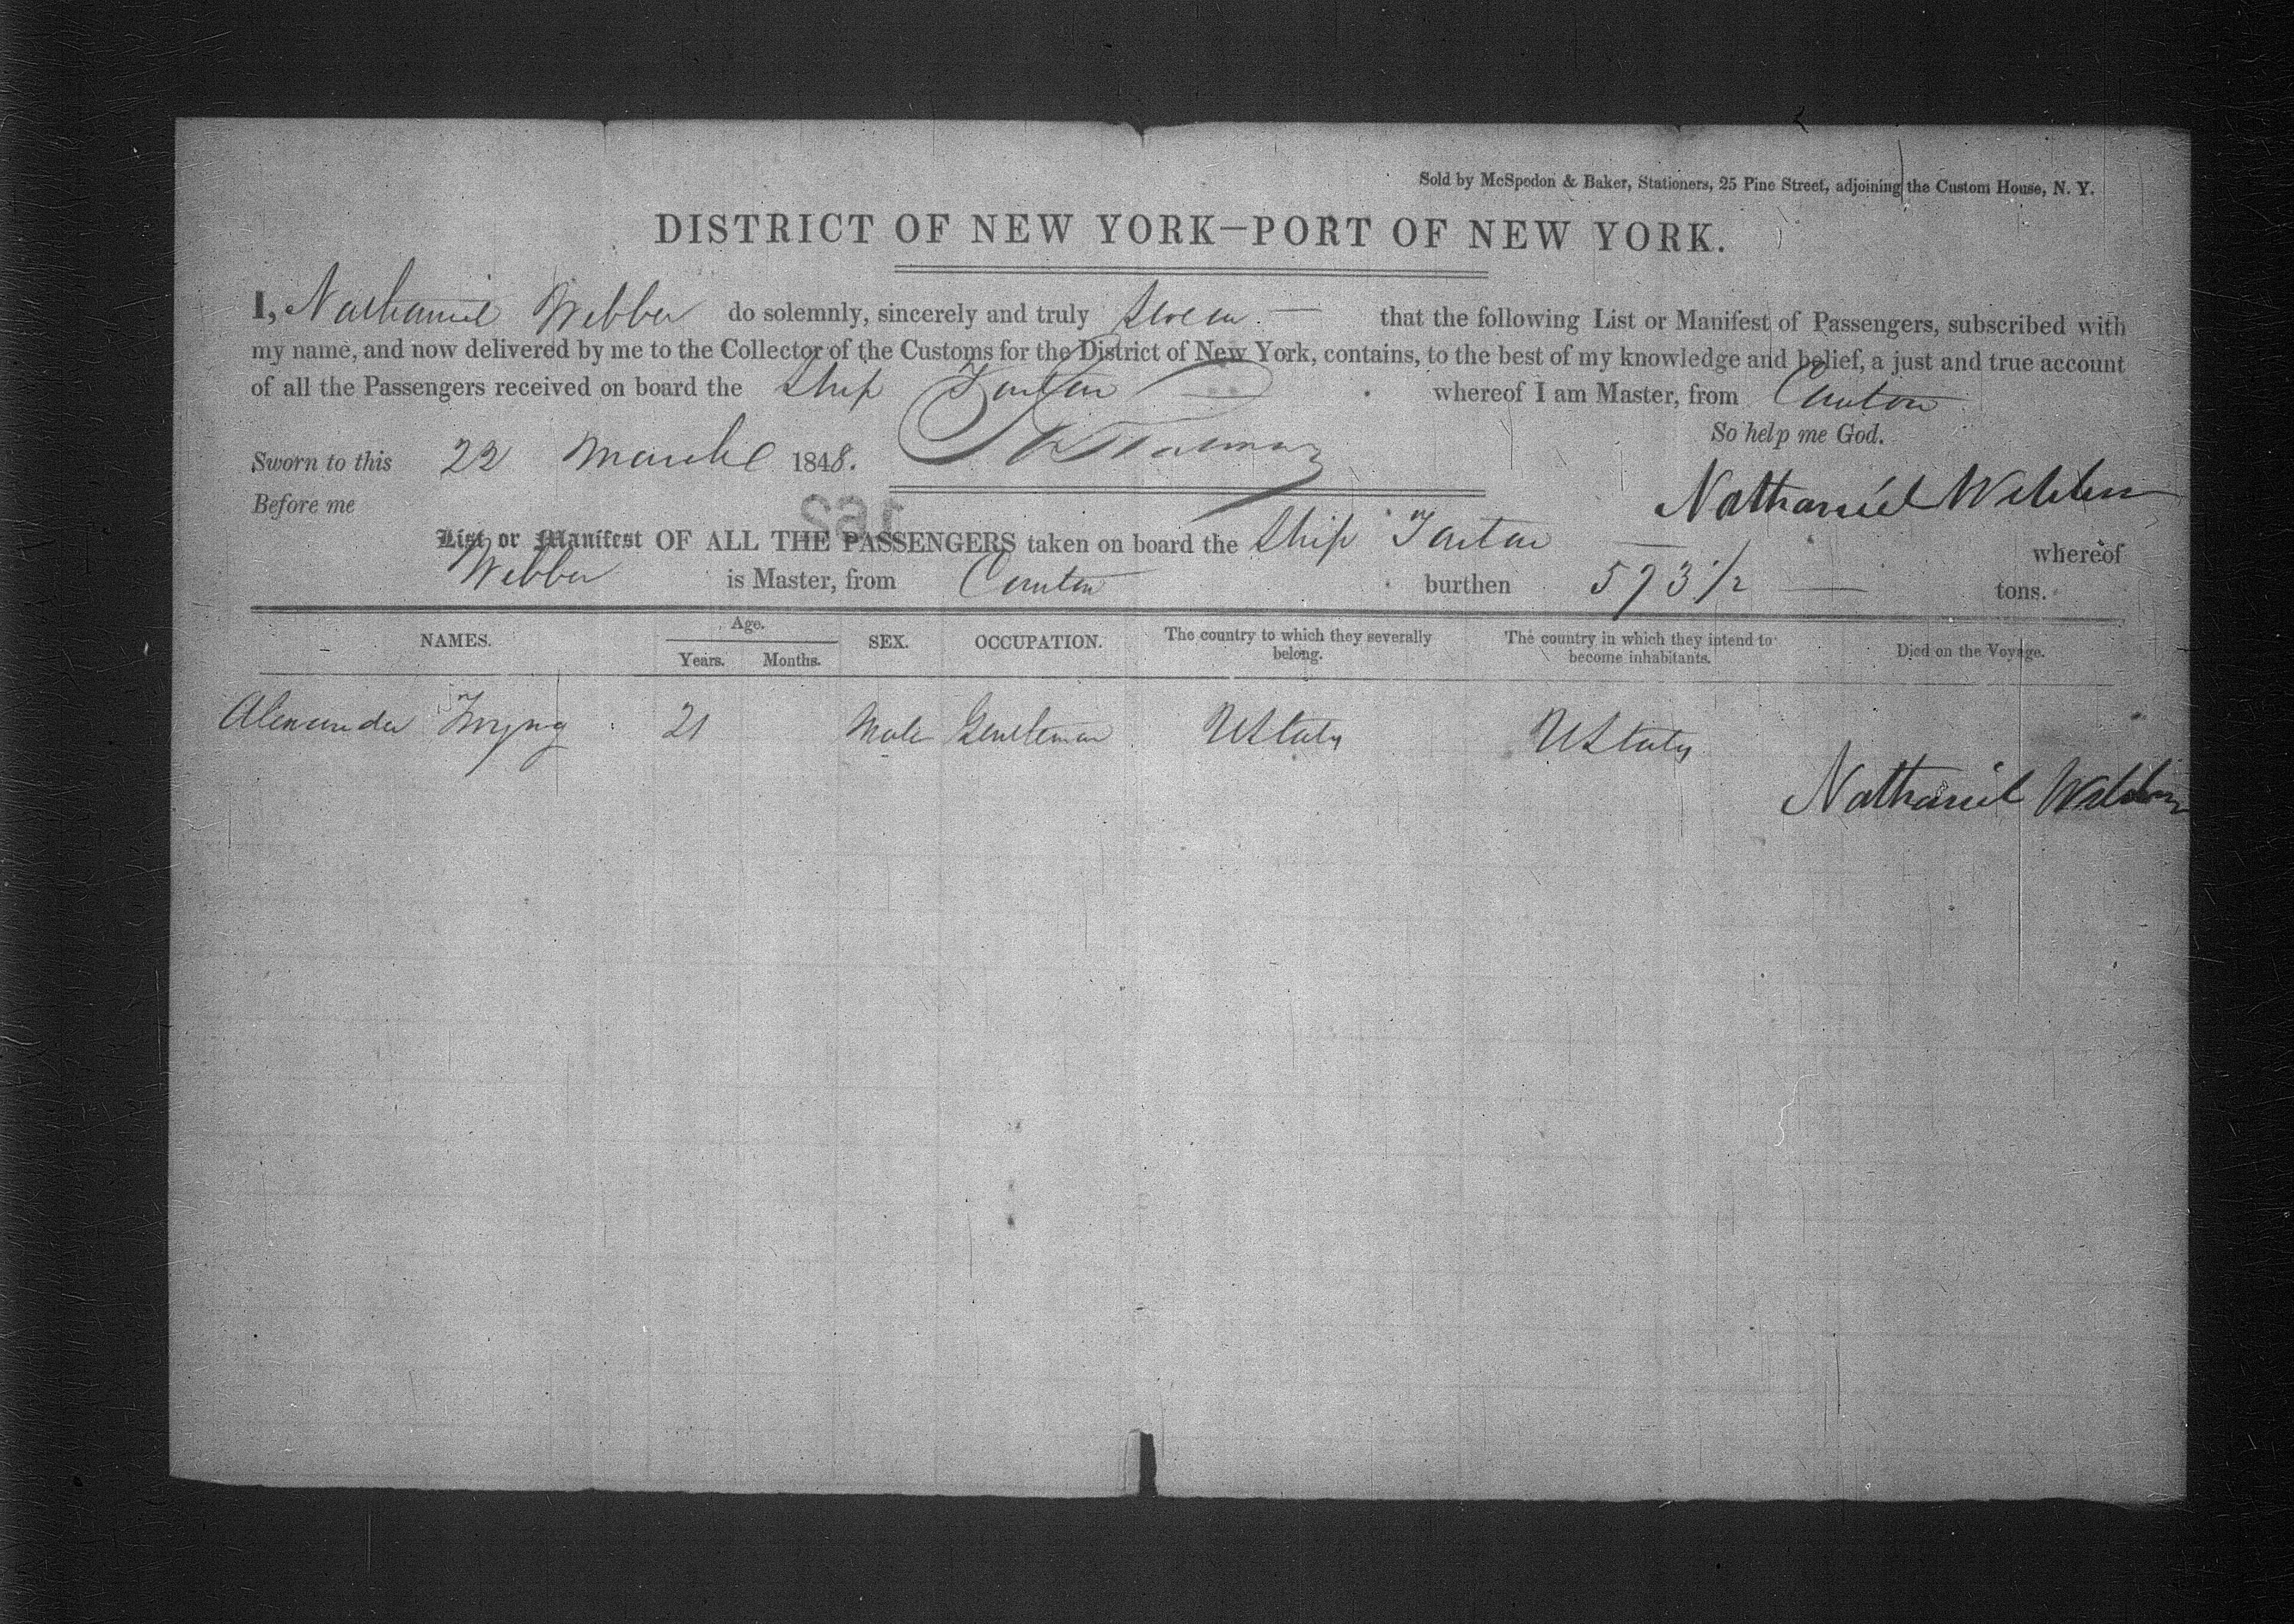 Sold by McSpedon & Baker, Stationers, 25 Pine Street, adjoining the Custom House, N. Y.
DISTRICT OF NEW YORK—PORT OF NEW YORK.
I, Nathaniel Webber do solemnly, sincerely and truly swear — that the following List or Manifest of Passengers, subscribed with
my name, and now delivered by me to the Collector of the Customs for the District of New York, contains, to the best of my knowledge and belief, a just and true account
of all the Passengers received on board the Ship Tartar whereof I am Master, from Canton
So help me God.
Sworn to this 22 March 1848.
Before me
Nathaniel Webber
List or Manifest OF ALL THE PASSENGERS taken on board the Ship Tartar — whereof
Webber is Master, from Canton burthen 573 1/2 — tons.
NAMES. Age. Years. Months. SEX. OCCUPATION. The country to which they severally belong. The country in which they intend to become inhabitants. Died on the Voyage.
Alexander 21 Male Gentleman U States U States
Nathaniel Webber